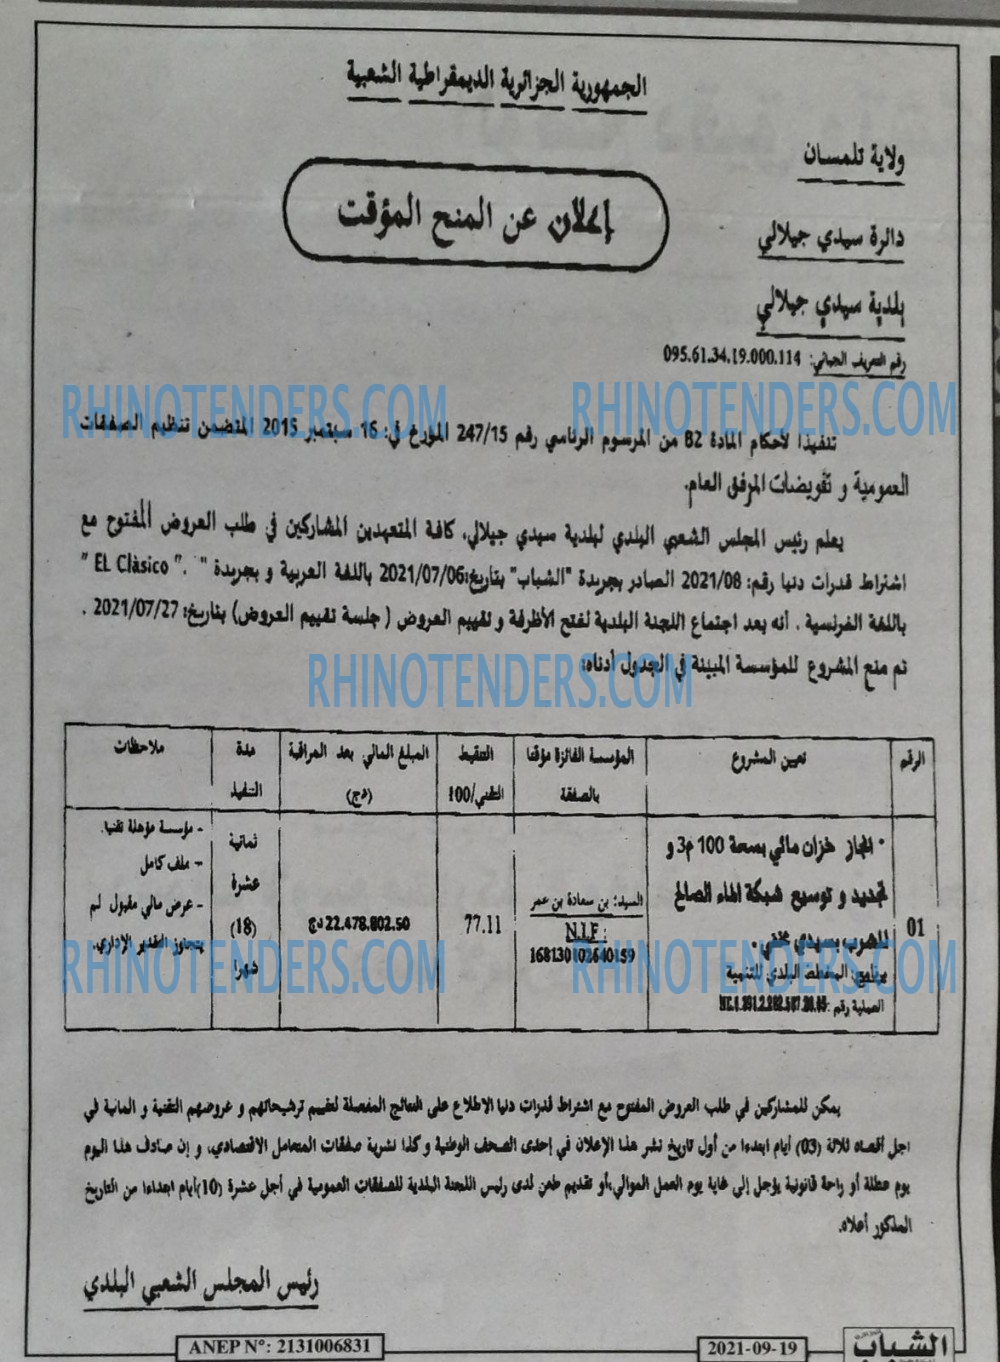 الجمهورية الجزائرية الديمقراطية الشعبية
ولاية تلمسان
إعلان عن المنح المؤقت
دائرة سيدي جيلالي
بلدية سيدي جيلالي
رقم التعريف الجبائي: 095.61.34.19.000.114
RHINOTENDERS.COM RHINOTENDERS.COM
تنفيذا لأحكام المادة 82 من المرسوم الرئاسي رقم 247/15 المؤرخ في: 16 سبتمبر 2015 المتضمن تنظيم الصفقات
العمومية و تفويضات المرفق العام.
يعلم رئيس المجلس الشعبي البلدي لبلدية سيدي جيلالي، كافة المتعهدين المشاركين في طلب العروض المفتوح مع
اشتراط قدرات دنيا رقم: 2021/08 الصادر بجريدة "الشباب" بتاريخ:2021/07/06 باللغة العربية و بجريدة " . " EL Clàsico "
باللغة الفرنسية . أنه بعد اجتماع اللجنة البلدية لفتح الأظرفة و تقييم العروض ( جلسة تقييم العروض) بتاريخ: 2021/07/27 .
تم منح المشروع للمؤسسة المبينة في الجدول أدناه:
RHINOTENDERS.COM
الرقم تعيين المشروع المؤسسة الفائزة مؤقتا التنقيط المبلغ المالي بعد المراقبة مدة ملاحظات
بالصفقة التقني/100 (دج) التنفيذ
01
• انجاز خزان مائي بسعة 100 م3 و
تجديد و توسيع شبكة الماء الصالح
للشرب بسيدي يخفي .
برنامج: المخطط البلدي للتنمية
العملية رقم :
السيد: بن سعادة بن عمر
N.I.F :
168130102640159
77.11
22.478.802.50 دج
ثمانية
عشرة
(18)
شهرا
- مؤسسة مؤهلة تقنيا.
- ملف كامل
- عرض مالي مقبول لم
يتجاوز التقدير الإداري.
RHINOTENDERS.COM RHINOTENDERS.COM
يمكن للمشاركين في طلب العروض المفتوح مع اشتراط قدرات دنيا الاطلاع على النتائج المفصلة لتقييم ترشيحاتهم و عروضهم التقنية و المالية في
اجل أقصاه ثلاثة (03) أيام ابتداءا من أول تاريخ نشر هذا الإعلان في إحدى الصحف الوطنية و كذا نشرية صفقات المتعامل الاقتصادي، و إن صادف هذا اليوم
يوم عطلة أو راحة قانونية يؤجل إلى غاية يوم العمل الموالي،أو تقديم طعن لدى رئيس اللجنة البلدية للصفقات العمومية في أجل عشرة (10)أيام ابتداءا من التاريخ
المذكور أعلاه.
رئيس المجلس الشعبي البلدي
ANEP N°: 2131006831
2021-09-19
الشباب